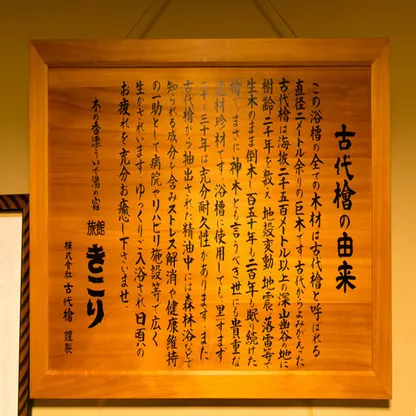 古代檜の由来
この浴槽の全ての木材は古代檜と呼ばれる
直径二メートル余りの巨木です。古代からよみがえった
古代檜は海抜二千五百メートル以上の深山幽谷の地に
樹齢二千年を数え地殻変動、地震、落雷等で
生木のまま倒木し百五十年も二百年も眠り続けた
檜で、まさに神木とも言うべき世にも貴重な
銘材珍材です。浴槽に使用しても
二十〜三十年は充分耐久性があります。また
古代檜から抽出された精油中には森林浴などで
知られる成分を含みストレス解消や健康維持
の一助として病院やリハビリ施設等で広く
生かされています。ゆっくりご入浴され日頃の
お疲れを充分お癒し下さいませ。
木の香漂う いで湯の宿
旅館 きこり
株式会社 古代檜 謹製